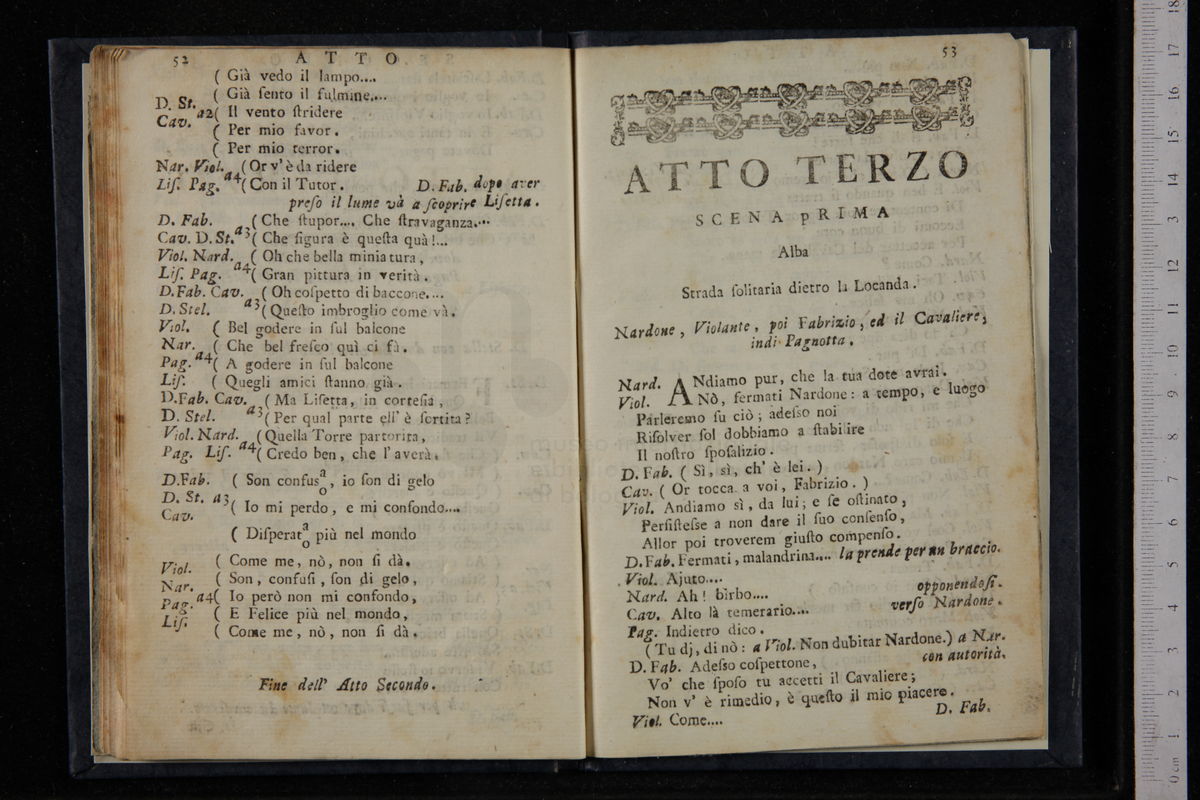 52 A T T O
( Già vedo il lampo....
( Già ſento il fulmine....
D. St. Cav. a2 ( Il vento ſtridere
( Per mio favor.
( Per mio terror.
Nar. Viol. ( Or v' è da ridere
Liſ. Pag. a4 ( Con il Tutor. D. Fab. dopo aver
preſo il lume và a ſcoprire Liſetta.
D. Fab. ( Che ſtupor.... Che ſtravaganza....
Cav. D. St. a3 ( Che figura è queſta quà!...
Viol. Nard. ( Oh che bella miniatura,
Liſ. Pag. a4 ( Gran pittura in verità.
D. Fab. Cav. ( Oh coſpetto di baccone....
D. Stel. a3 ( Queſto imbroglio come và.
Viol. ( Bel godere in ſul balcone
Nar. ( Che bel freſco quì ci fà.
Pag. a4 ( A godere in ſul balcone
Liſ. ( Quegli amici ſtanno già.
D. Fab. Cav. ( Ma Liſetta, in corteſia,
D. Stel. a3 ( Per qual parte ell' è ſortita?
Viol. Nard. ( Quella Torre partorita,
Pag. Liſ. a4 ( Credo ben, che l' averà.
D. Fab. ( Son confus a/o, io ſon di gelo
D. St. Cav. a3 ( Io mi perdo, e mi confondo....
( Diſperat a/o più nel mondo
Viol. ( Come me, nò, non ſi dà.
Nar. ( Son, confuſi, ſon di gelo,
Pag. a4 ( Io però non mi confondo,
Liſ. ( E Felice più nel mondo,
( Come me, nò, non ſi dà.
Fine dell' Atto Secondo.
53
ATTO TERZO
SCENA pRIMA
Alba
Strada ſolitaria dietro la Locanda.
Nardone, Violante, poi Fabrizio, ed il Cavaliere,
indi Pagnotta.
Nard. ANdiamo pur, che la tua dote avrai.
Viol. Nò, fermati Nardone: a tempo, e luogo
Parleremo ſu ciò; adeſso noi
Riſolver ſol dobbiamo a ſtabilire
Il noſtro ſpoſalizio.
D. Fab. ( Sì, sì, ch' è lei. )
Cav. ( Or tocca a voi, Fabrizio. )
Viol. Andiamo sì, da lui; e ſe oſtinato,
Perſiſteſse a non dare il ſuo conſenſo,
Allor poi troverem giuſto compenſo.
D. Fab. Fermati, malandrina.... la prende per un braccio.
Viol. Ajuto....
Nard. Ah! birbo.... opponendoſi.
Cav. Alto là temerario.... verſo Nardone.
Pag. Indietro dico.
( Tu dj, di nò: a Viol. Non dubitar Nardone.) a Nar.
D. Fab. Adeſso coſpettone, con autorità.
Vo' che ſpoſo tu accetti il Cavaliere;
Non v' è rimedio, è queſto il mio piacere.
Viol. Come.... D. Fab.